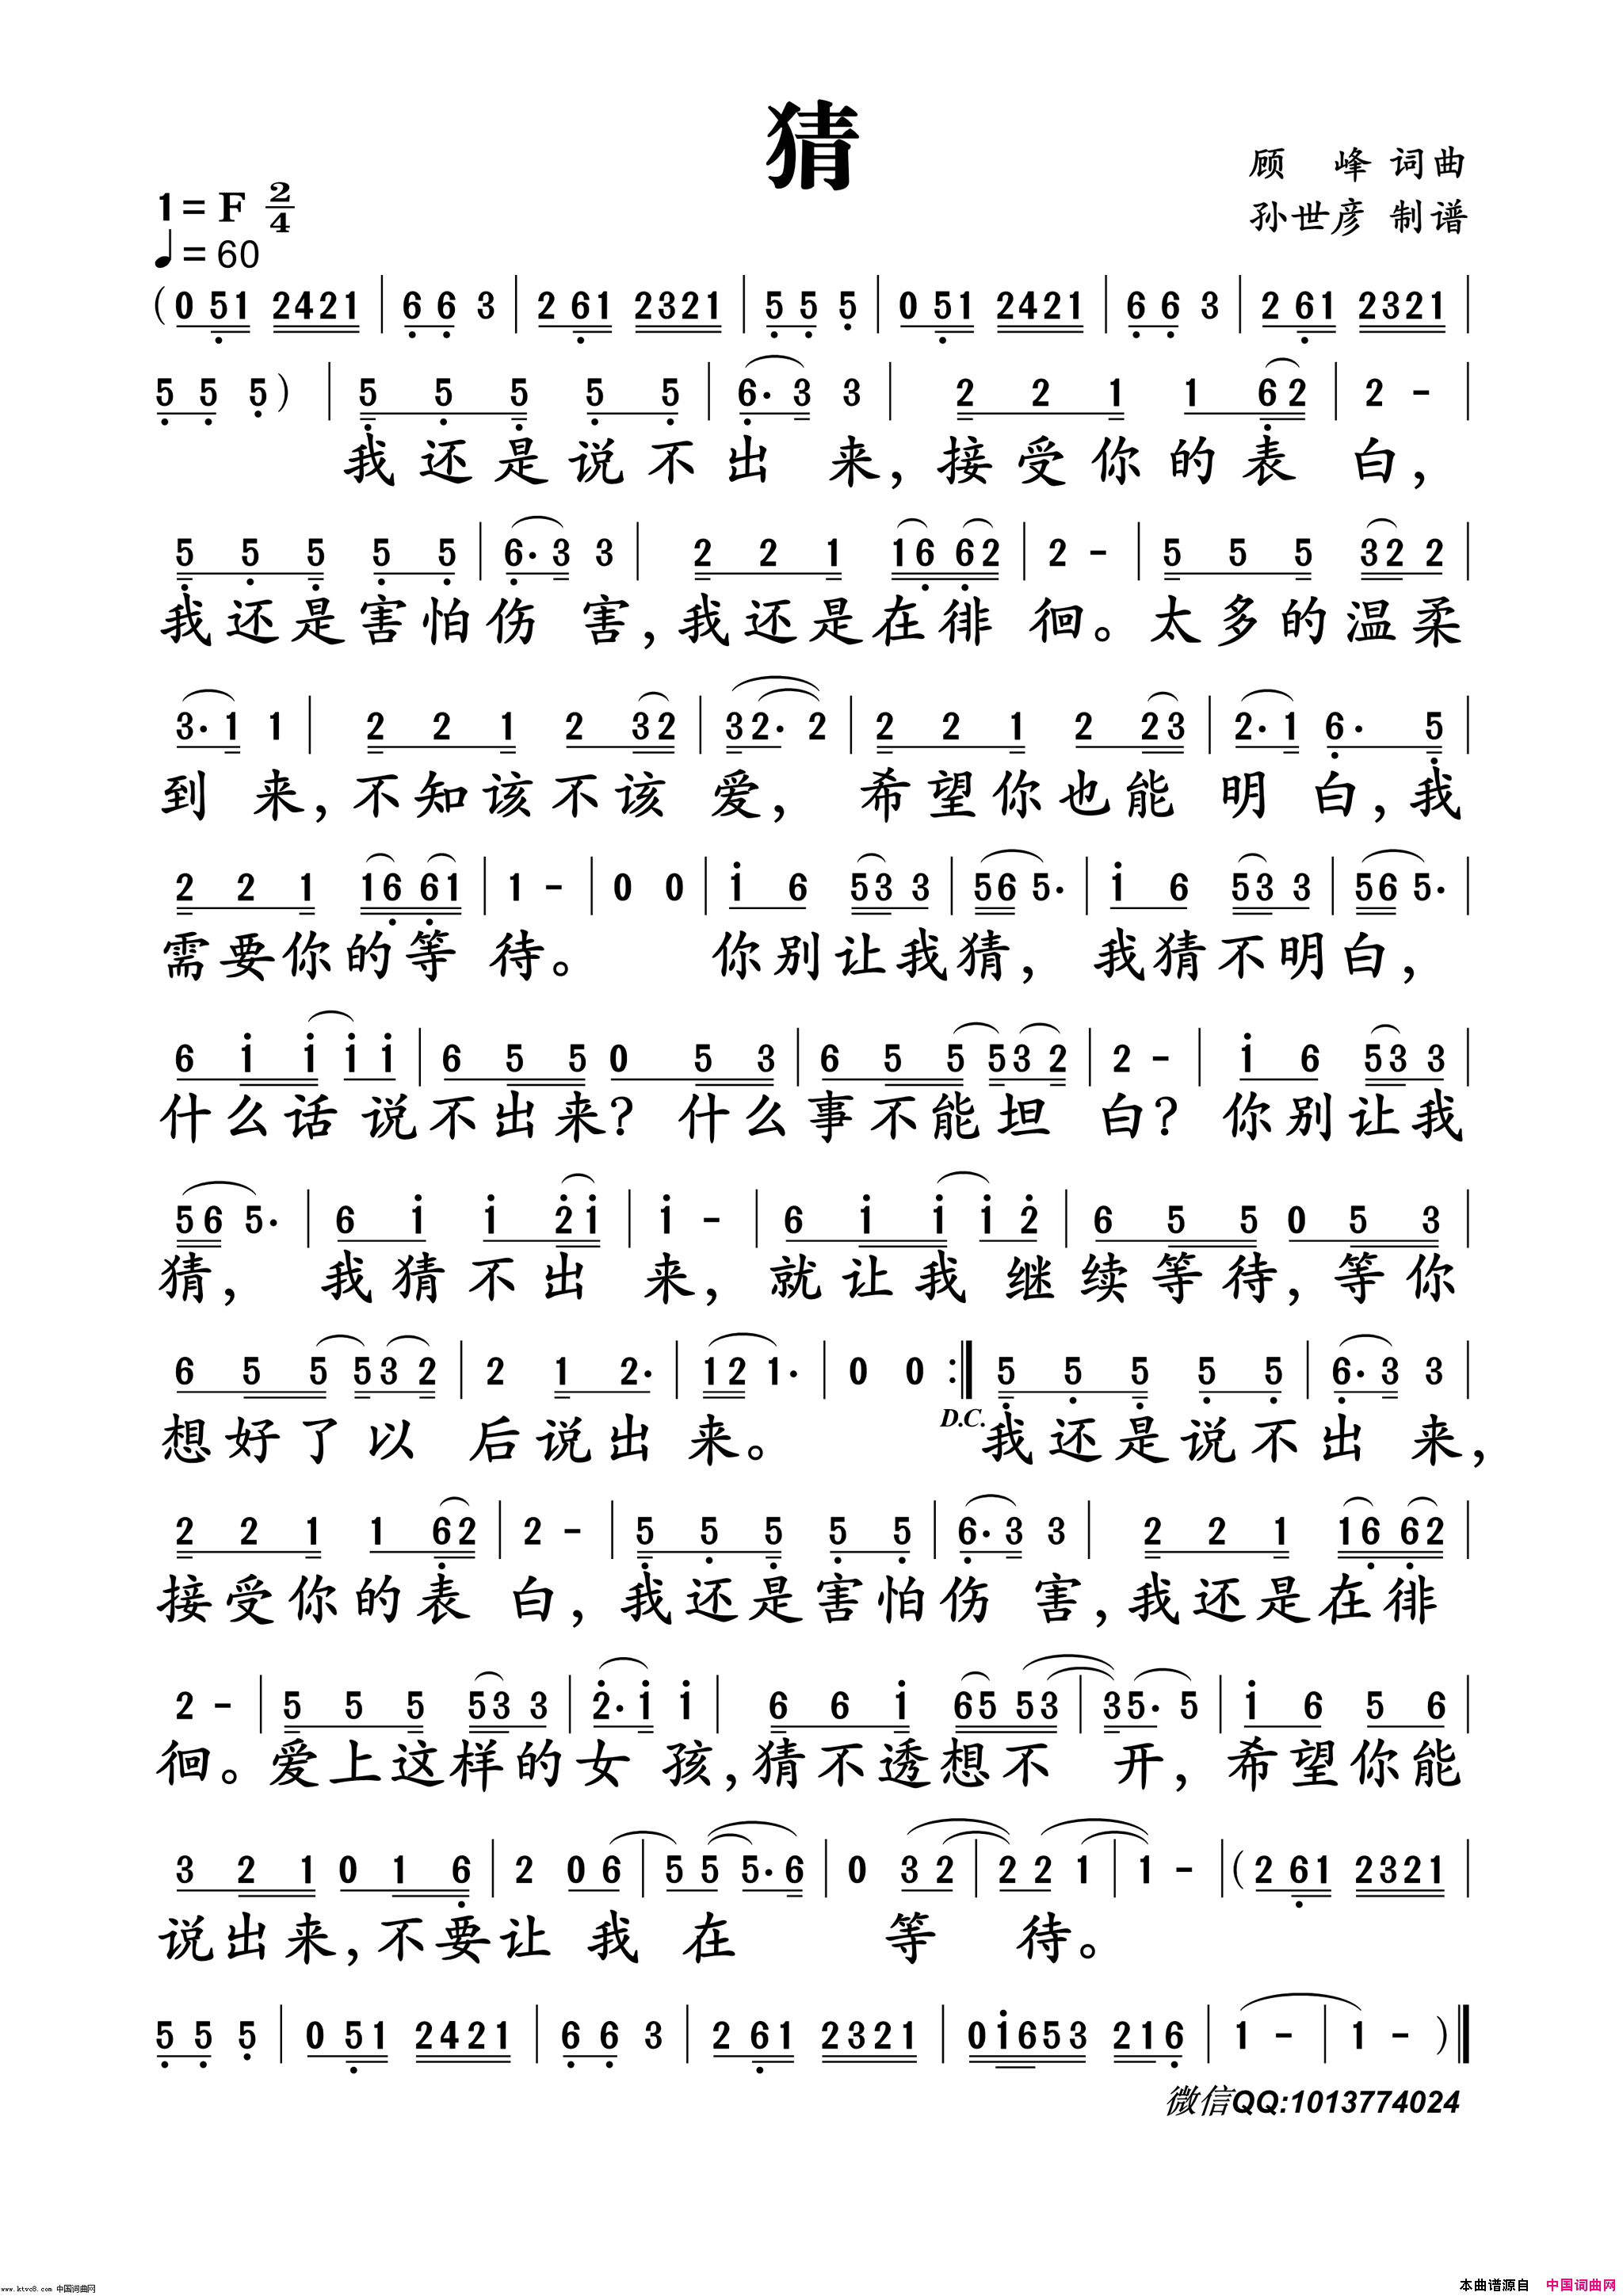 猜
顾 峰 词曲
1= F 2/4
孙世彦 制谱
♩= 60
( 0 51 2421 | 6 6 3 | 2 61 2321 | 5 5 5 | 0 51 2421 | 6 6 3 | 2 61 2321 |
5 5 5 ) | 5 5 5 5 5 | 6· 3 3 | 2 2 1 1 62 | 2 - |
我还是说不出 来,接受你的表 白,
5 5 5 5 5 | 6· 3 3 | 2 2 1 16 62 | 2 - | 5 5 5 32 2 |
我还是害怕伤 害,我还是在徘 徊。太多的温柔
3· 1 1 | 2 2 1 2 32 | 32· 2 | 2 2 1 2 23 | 2· 1 6· 5 |
到 来,不知该不该 爱, 希望你也能 明 白,我
2 2 1 16 61 | 1 - | 0 0 | i 6 53 3 | 56 5· | i 6 53 3 | 56 5· |
需要你的等 待。 你别让我猜, 我猜不明白,
6 i i i i | 6 5 5 0 5 3 | 6 5 5 53 2 | 2 - | i 6 53 3 |
什么话 说不出来? 什么事不能坦 白? 你别让我
56 5· | 6 i i 2i | i - | 6 i i i 2 | 6 5 5 0 5 3 |
猜, 我猜不出 来,就让我 继续等待,等你
6 5 5 53 2 | 2 1 2· | 12 1· | 0 0 :| 5 5 5 5 5 | 6· 3 3 |
D.C.
想好了以 后说出 来。 我还是说不出 来,
2 2 1 1 62 | 2 - | 5 5 5 5 5 | 6· 3 3 | 2 2 1 16 62 |
接受你的表 白,我还是害怕伤 害,我还是在徘
2 - | 5 5 5 53 3 | 2· i i | 6 6 i 65 53 | 35· 5 | i 6 5 6 |
徊。爱上这样的女 孩,猜不透想不 开,希望你能
3 2 1 0 1 6 | 2 0 6 | 5 5 5· 6 | 0 3 2 | 2 2 1 | 1 - | ( 2 61 2321 |
说出来,不要让 我 在 等 待。
5 5 5 | 0 51 2421 | 6 6 3 | 2 61 2321 | 0i653 216 | 1 - | 1 - ) ‖
微信QQ:1013774024
www.ktvc8.com 中国词曲网
本曲谱源自 中国词曲网